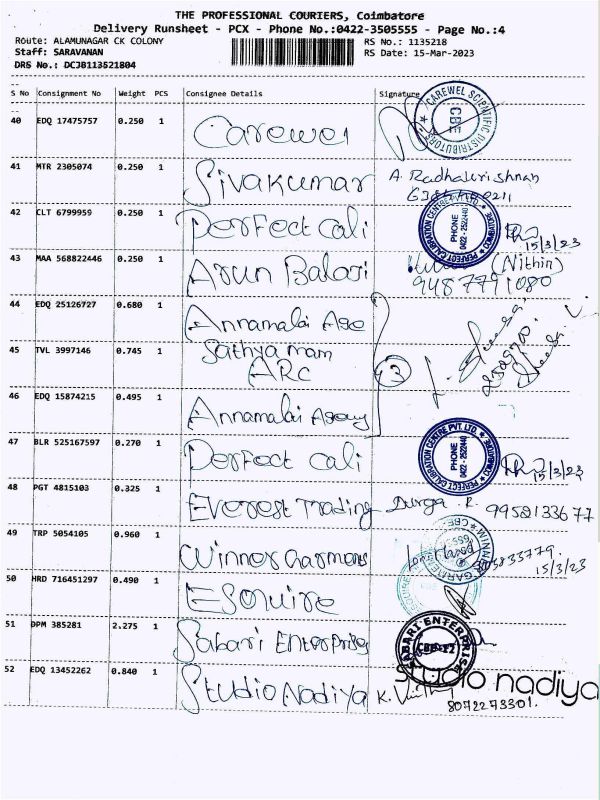 THE PROFESSIONAL COURIERS, Coimbatore
Delivery Runsheet - PCX - Phone No.:0422-3505555 - Page No.:4
Route: ALAMUNAGAR CK COLONY
RS No.: 1135218
Staff: SARAVANAN
RS Date: 15-Mar-2023
DRS No.: DCJB113521804
S No Consignment No Weight PCS Consignee Details Signature
40 EDQ 17475757 0.250 1 Carewel
CAREWEL SCIENTIFIC DISTRIBUTORS
41 MTR 2305074 0.250 1 Sivakumar A. Radhakrishnan
42 CLT 6799959 0.250 1 Perfect Cali
PERFECT CALIBRATION CENTRE PVT. LTD. COIMBATORE PHONE 0422 - 2522440
15/3/23
43 MAA 568822446 0.250 1 Arun Balaji (Nithin)
9487791080
44 EDQ 25126727 0.680 1 Annamalai Age
45 TVL 3997146 0.745 1 Sathyamam
ARC
3
46 EDQ 15874215 0.495 1 Annamalai Agency
47 BLR 525167597 0.270 1 Perfect Cali
PERFECT CALIBRATION CENTRE PVT. LTD. COIMBATORE PHONE 0422 - 2522440
15/3/23
48 PGT 4815103 0.325 1 Everest Trading Durga R. 9958133677
49 TRP 5054105 0.960 1 Winner Garmens
WINNER GARMENTS CBE
15/3/23
50 HRD 716451297 0.490 1 Esquire
ESQUIRE
51 DPM 385281 2.275 1 Sabari Enterprises
SABARI ENTERPRISE
52 EDQ 13452262 0.840 1 Studio Nadiya
studio nadiya
8072273301.